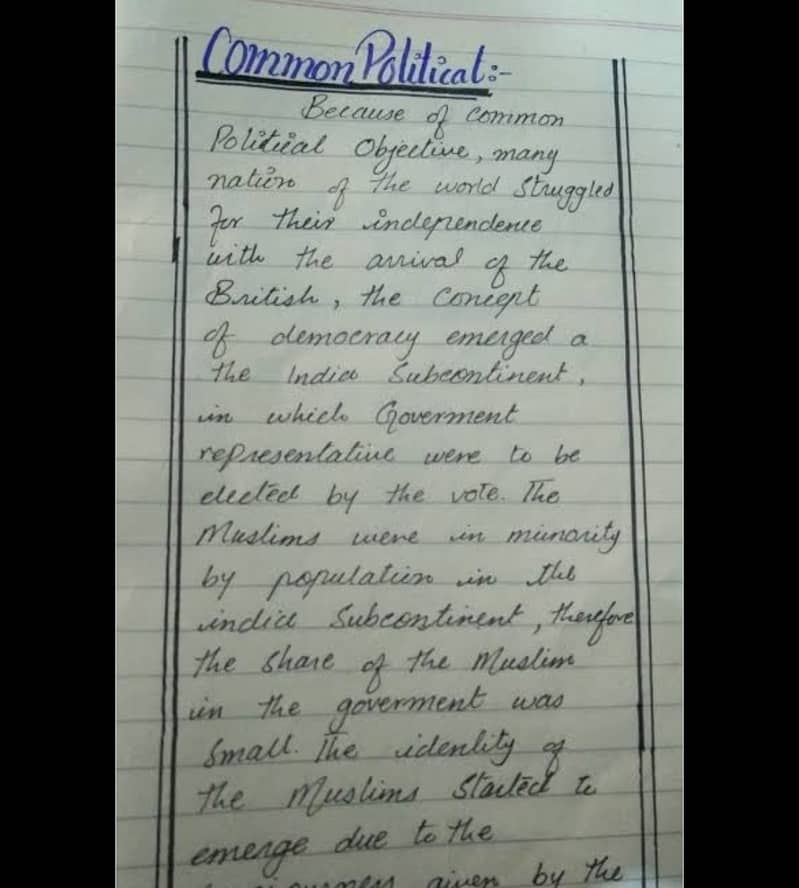 Common Political:-
Because of common
Political Objective, many
nation of the world struggled
for their independence
with the arrival of the
British, the concept
of democracy emerged a
the India Subcontinent,
in which Goverment
representative were to be
elected by the vote. The
Muslims were in minority
by population in the
india Subcontinent, therefore
the share of the Muslim
in the goverment was
small. The identity of
the Muslims started to
emerge due to the
given by the